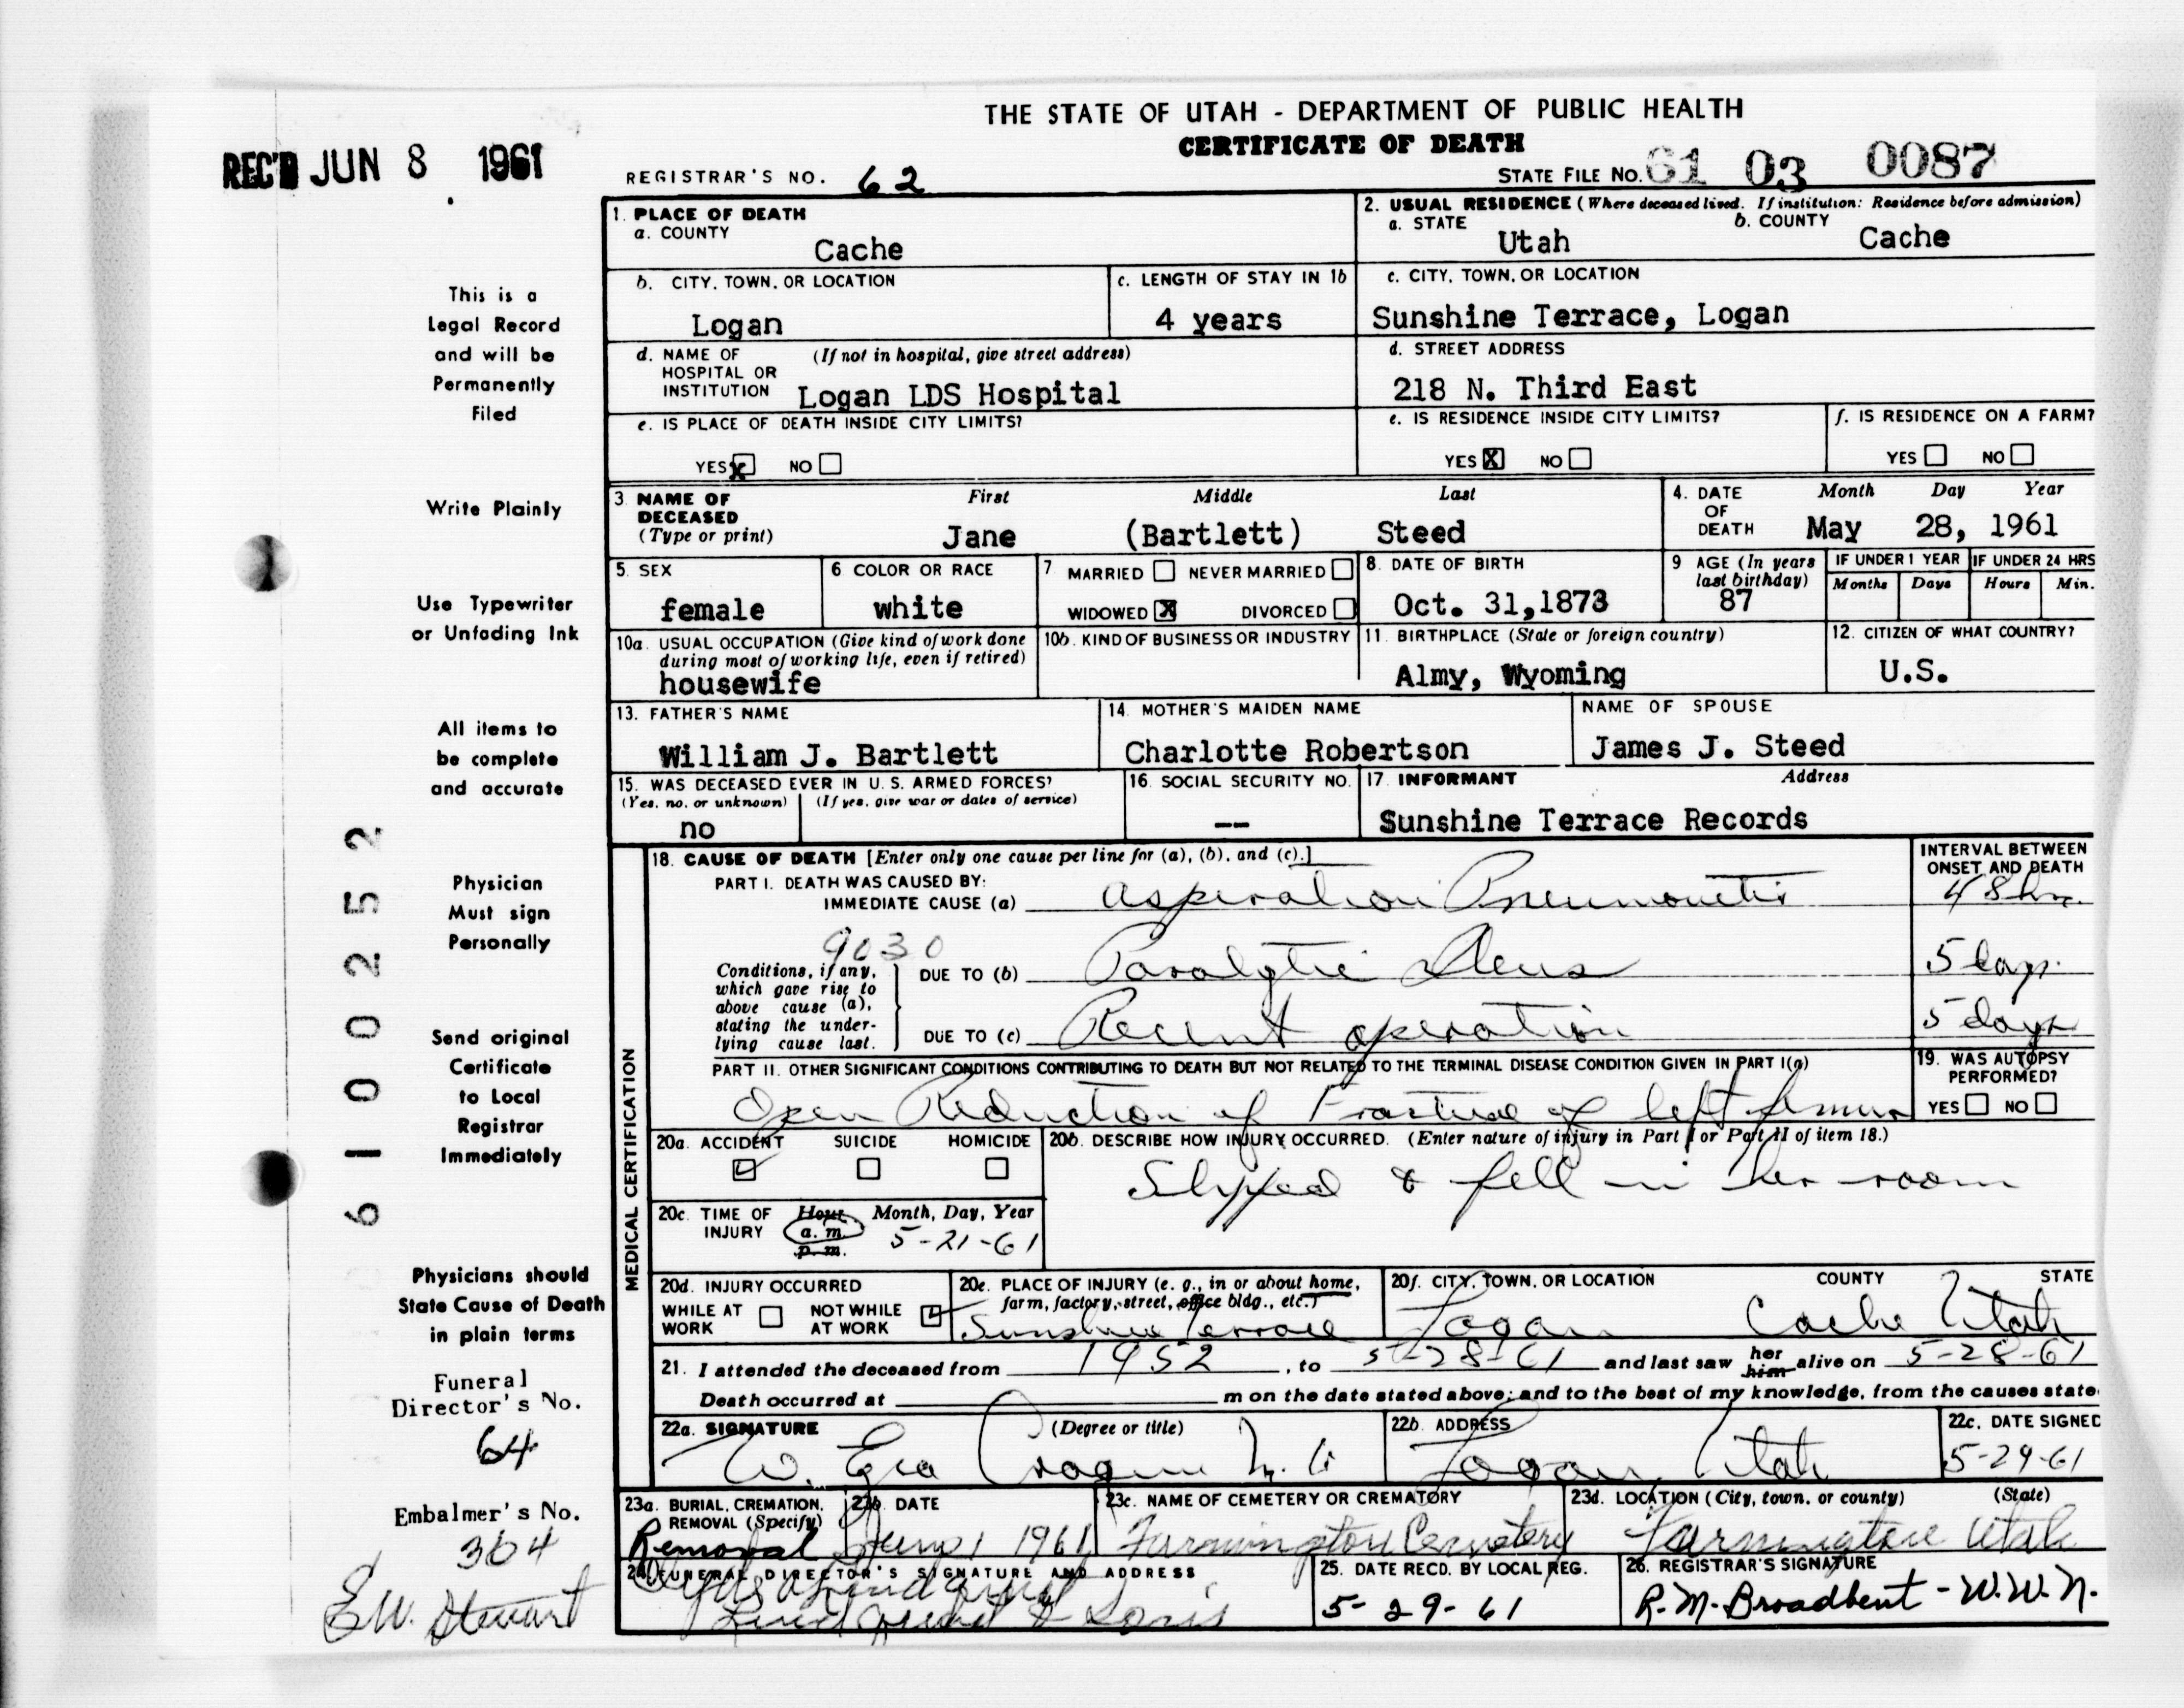 THE STATE OF UTAH - DEPARTMENT OF PUBLIC HEALTH
CERTIFICATE OF DEATH
REC'D JUN 8 1961
REGISTRAR'S NO. 62
STATE FILE NO. 61 03 0087
1. PLACE OF DEATH
a. COUNTY
Cache
2. USUAL RESIDENCE (Where deceased lived. If institution: Residence before admission)
a. STATE
Utah
b. COUNTY
Cache
b. CITY, TOWN, OR LOCATION
Logan
c. LENGTH OF STAY IN 1b
4 years
c. CITY, TOWN, OR LOCATION
Sunshine Terrace, Logan
d. NAME OF HOSPITAL OR INSTITUTION
(If not in hospital, give street address)
Logan LDS Hospital
d. STREET ADDRESS
218 N. Third East
e. IS PLACE OF DEATH INSIDE CITY LIMITS?
YES x NO
e. IS RESIDENCE INSIDE CITY LIMITS?
YES X NO
f. IS RESIDENCE ON A FARM?
YES NO
3. NAME OF DECEASED
(Type or print)
First Middle Last
Jane (Bartlett) Steed
4. DATE OF DEATH
Month Day Year
May 28, 1961
5. SEX
female
6 COLOR OR RACE
white
7 MARRIED NEVER MARRIED
WIDOWED X DIVORCED
8. DATE OF BIRTH
Oct. 31,1873
9 AGE (In years last birthday)
87
IF UNDER 1 YEAR
Months Days
IF UNDER 24 HRS
Hours Min.
10a. USUAL OCCUPATION (Give kind of work done during most of working life, even if retired)
housewife
10b. KIND OF BUSINESS OR INDUSTRY
11. BIRTHPLACE (State or foreign country)
Almy, Wyoming
12. CITIZEN OF WHAT COUNTRY?
U.S.
13. FATHER'S NAME
William J. Bartlett
14. MOTHER'S MAIDEN NAME
Charlotte Robertson
NAME OF SPOUSE
James J. Steed
15. WAS DECEASED EVER IN U. S. ARMED FORCES?
(Yes, no, or unknown) (If yes, give war or dates of service)
no
16. SOCIAL SECURITY NO.
--
17. INFORMANT Address
Sunshine Terrace Records
MEDICAL CERTIFICATION
18. CAUSE OF DEATH [Enter only one cause per line for (a), (b), and (c).]
INTERVAL BETWEEN ONSET AND DEATH
PART I. DEATH WAS CAUSED BY:
IMMEDIATE CAUSE (a) Aspiration Pneumonitis 48 hrs.
9030
Conditions, if any, which gave rise to above cause (a), stating the underlying cause last.
DUE TO (b) Paralytic Ileus 5 days.
DUE TO (c) Recent operation 5 days
PART II. OTHER SIGNIFICANT CONDITIONS CONTRIBUTING TO DEATH BUT NOT RELATED TO THE TERMINAL DISEASE CONDITION GIVEN IN PART I(a)
Open Reduction of Fracture of left femur
19. WAS AUTOPSY PERFORMED?
YES NO
20a. ACCIDENT SUICIDE HOMICIDE
20b. DESCRIBE HOW INJURY OCCURRED. (Enter nature of injury in Part I or Part II of item 18.)
Slipped & fell in her room
20c. TIME OF INJURY
Hour Month, Day, Year
a. m.
p. m.
5-21-61
20d. INJURY OCCURRED
WHILE AT WORK NOT WHILE AT WORK
20e. PLACE OF INJURY (e. g., in or about home, farm, factory, street, office bldg., etc.)
Sunshine Terrace
20f. CITY, TOWN, OR LOCATION COUNTY STATE
Logan Cache Utah
21. I attended the deceased from 1952, to 5-28-61 and last saw her him alive on 5-28-61
Death occurred at m on the date stated above; and to the best of my knowledge, from the causes state
22a. SIGNATURE (Degree or title)
W. Ezra Cragun M. D.
22b. ADDRESS
Logan Utah
22c. DATE SIGNED
5-29-61
23a. BURIAL, CREMATION, REMOVAL (Specify)
Removal
23b. DATE
June 1 1961
23c. NAME OF CEMETERY OR CREMATORY
Farmington Cemetery
23d. LOCATION (City, town, or county) (State)
Farmington Utah
24. FUNERAL DIRECTOR'S SIGNATURE AND ADDRESS
Lindquist & Sons
25. DATE RECD. BY LOCAL REG.
5-29-61
26. REGISTRAR'S SIGNATURE
R.M. Broadbent - W.W.N.
This is a
Legal Record
and will be
Permanently
Filed
Write Plainly
Use Typewriter
or Unfading Ink
All items to
be complete
and accurate
Physician
Must sign
Personally
Send original
Certificate
to Local
Registrar
Immediately
Physicians should
State Cause of Death
in plain terms
Funeral
Director's No.
64
Embalmer's No.
364
E.W. Stewart
61 00252